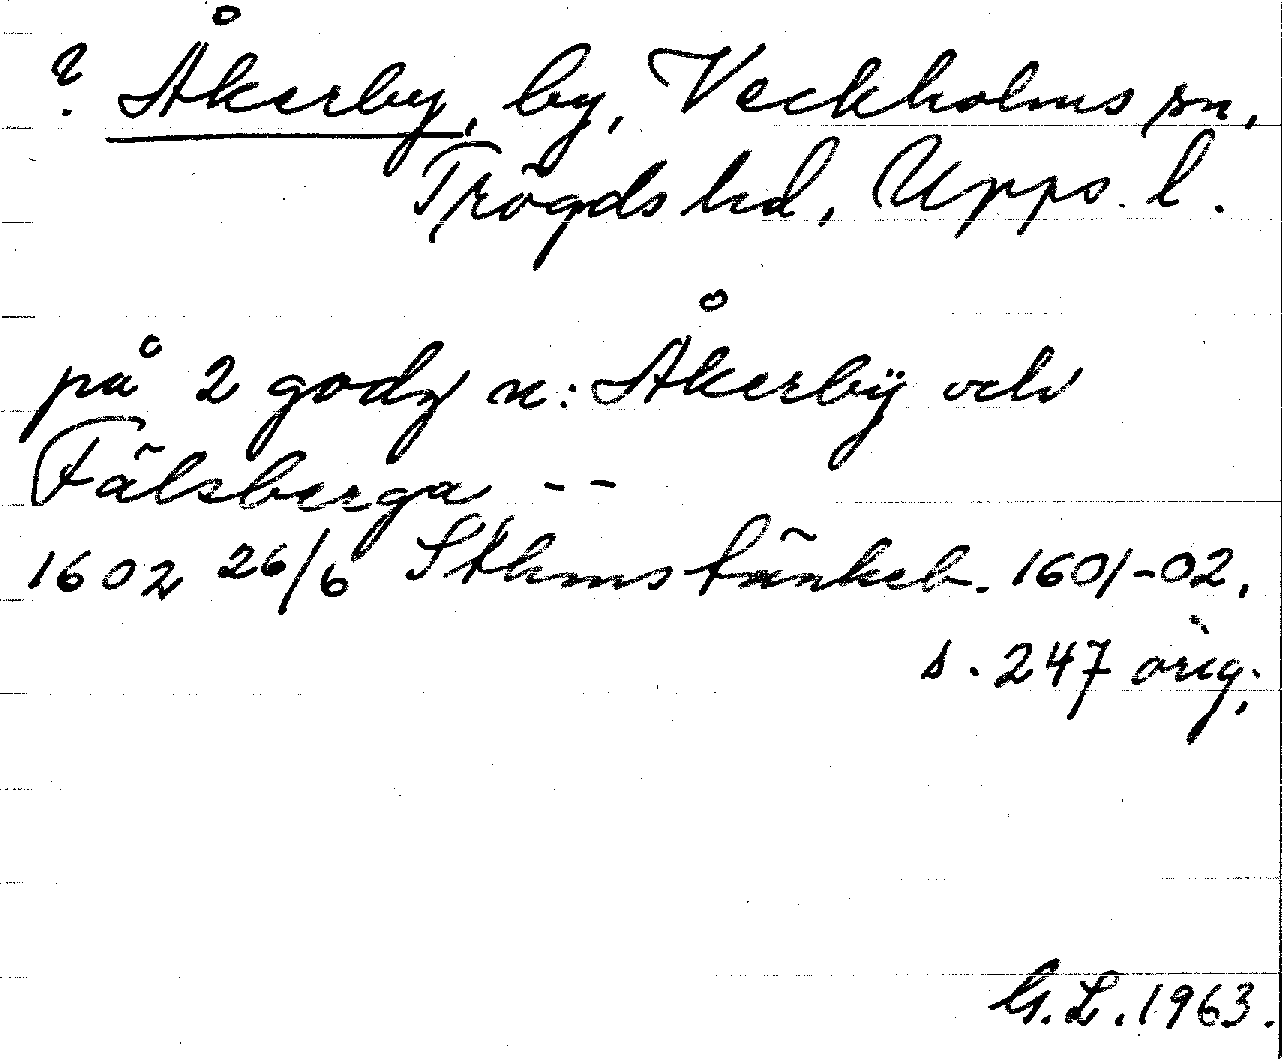 ? Åkerby, by, Veckholms sn,
Trögds hd, Upps. l.
på 2 godz n: Åkerbÿ och
Fälsberga --
1602 26/6 Sthms tänkeb. 1601-02,
s. 247 orig.
G. L. 1963.